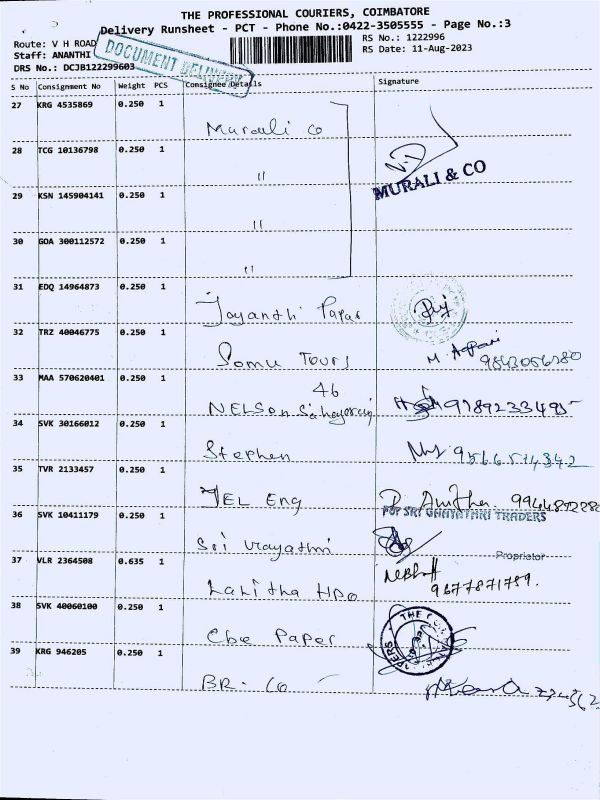 THE PROFESSIONAL COURIERS, COIMBATORE
Delivery Runsheet - PCT - Phone No.:0422-3505555 - Page No.:3
Route: V H ROAD
RS No.: 1222996
Staff: ANANTHI
RS Date: 11-Aug-2023
DRS No.: DCJB122299603
DOCUMENT DELIVERY
S No Consignment No Weight PCS Consignee Details Signature
27 KRG 4535869 0.250 1
Murali Co
28 TCG 10136798 0.250 1
"
MURALI & CO
29 KSN 145904141 0.250 1
"
30 GOA 300112572 0.250 1
"
31 EDQ 14964873 0.250 1
Jayanthi Paper
32 TRZ 40046775 0.250 1
Somu Tours
33 MAA 570620401 0.250 1
46
NELSON
34 SVK 30166012 0.250 1
Stephen
35 TVR 2133457 0.250 1
JEL Eng
36 SVK 10411179 0.250 1
For SRI GHAYATHRI TRADERS
Sri
Proprietor
37 VLR 2364508 0.635 1
Lalitha HPO
9677871789.
38 SVK 40060100 0.250 1
Cbe Paper
39 KRG 946205 0.250 1
BR. Co